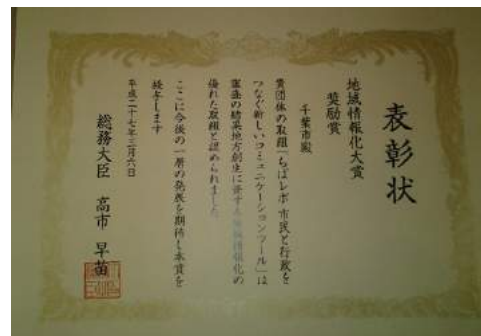 表彰状
地域情報化大賞
奨励賞
千葉市殿
貴団体の取組「ちばレポ 市民と行政を
つなぐ新しいコミュニケーションツール」は
審査の結果地方創生に資する地域情報化の
優れた取組と認められました
ここに今後の一層の発展を期待し本賞を
授与します
平成二十七年三月六日
総務大臣 高市 早苗